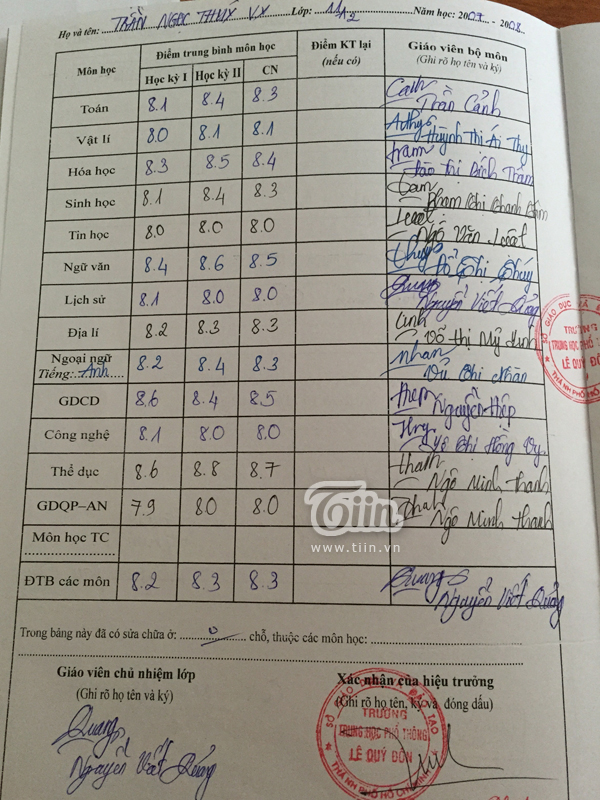 Họ và tên: TRẦN NGỌC THUÝ VY Lớp: 11A2 Năm học: 2007 - 2008
Môn học Điểm trung bình môn học Điểm KT lại (nếu có) Giáo viên bộ môn (Ghi rõ họ tên và ký)
Học kỳ I Học kỳ II CN
Toán 8.1 8.4 8.3 Cảnh Trần Cảnh
Vật lí 8.0 8.1 8.1 Huỳnh Thị Ái Thy
Hóa học 8.3 8.5 8.4 Trâm Thị Bích Trâm
Sinh học 8.1 8.4 8.3
Tin học 8.0 8.0 8.0 Ngô Văn
Ngữ văn 8.4 8.6 8.5 Thúy Đỗ Thị Thúy
Lịch sử 8.1 8.0 8.0 Quảng Nguyễn Viết Quảng
Địa lí 8.2 8.3 8.3 Linh Võ Thị Mỹ Linh
Ngoại ngữ
Tiếng: Anh 8.2 8.4 8.3 nhàn Vũ Thị Nhàn
GDCD 8.6 8.4 8.5 Hiệp Nguyễn Hiệp
Công nghệ 8.1 8.0 8.0 Thị Hồng Vy
Thể dục 8.6 8.8 8.7 Thanh Ngô Minh Thanh
GDQP–AN 7.9 8.0 8.0 Thanh Ngô Minh Thanh
Môn học TC
ĐTB các môn 8.2 8.3 8.3 Quảng Nguyễn Viết Quảng
Tiin
www.tiin.vn
SỞ GIÁO DỤC VÀ
TRƯỜNG
TRUNG HỌC PHỔ
LÊ QUÝ ĐÔN
THÀNH PHỐ HỒ CHÍ MINH
Trong bảng này đã có sửa chữa ở: 0 chỗ, thuộc các môn học:
Giáo viên chủ nhiệm lớp Xác nhận của hiệu trưởng
(Ghi rõ họ tên và ký) (Ghi rõ họ tên, ký và đóng dấu)
Quảng
Nguyễn Viết Quảng
SỞ GIÁO DỤC VÀ ĐÀO TẠO
TRƯỜNG
TRUNG HỌC PHỔ THÔNG
LÊ QUÝ ĐÔN
THÀNH PHỐ HỒ CHÍ MINH